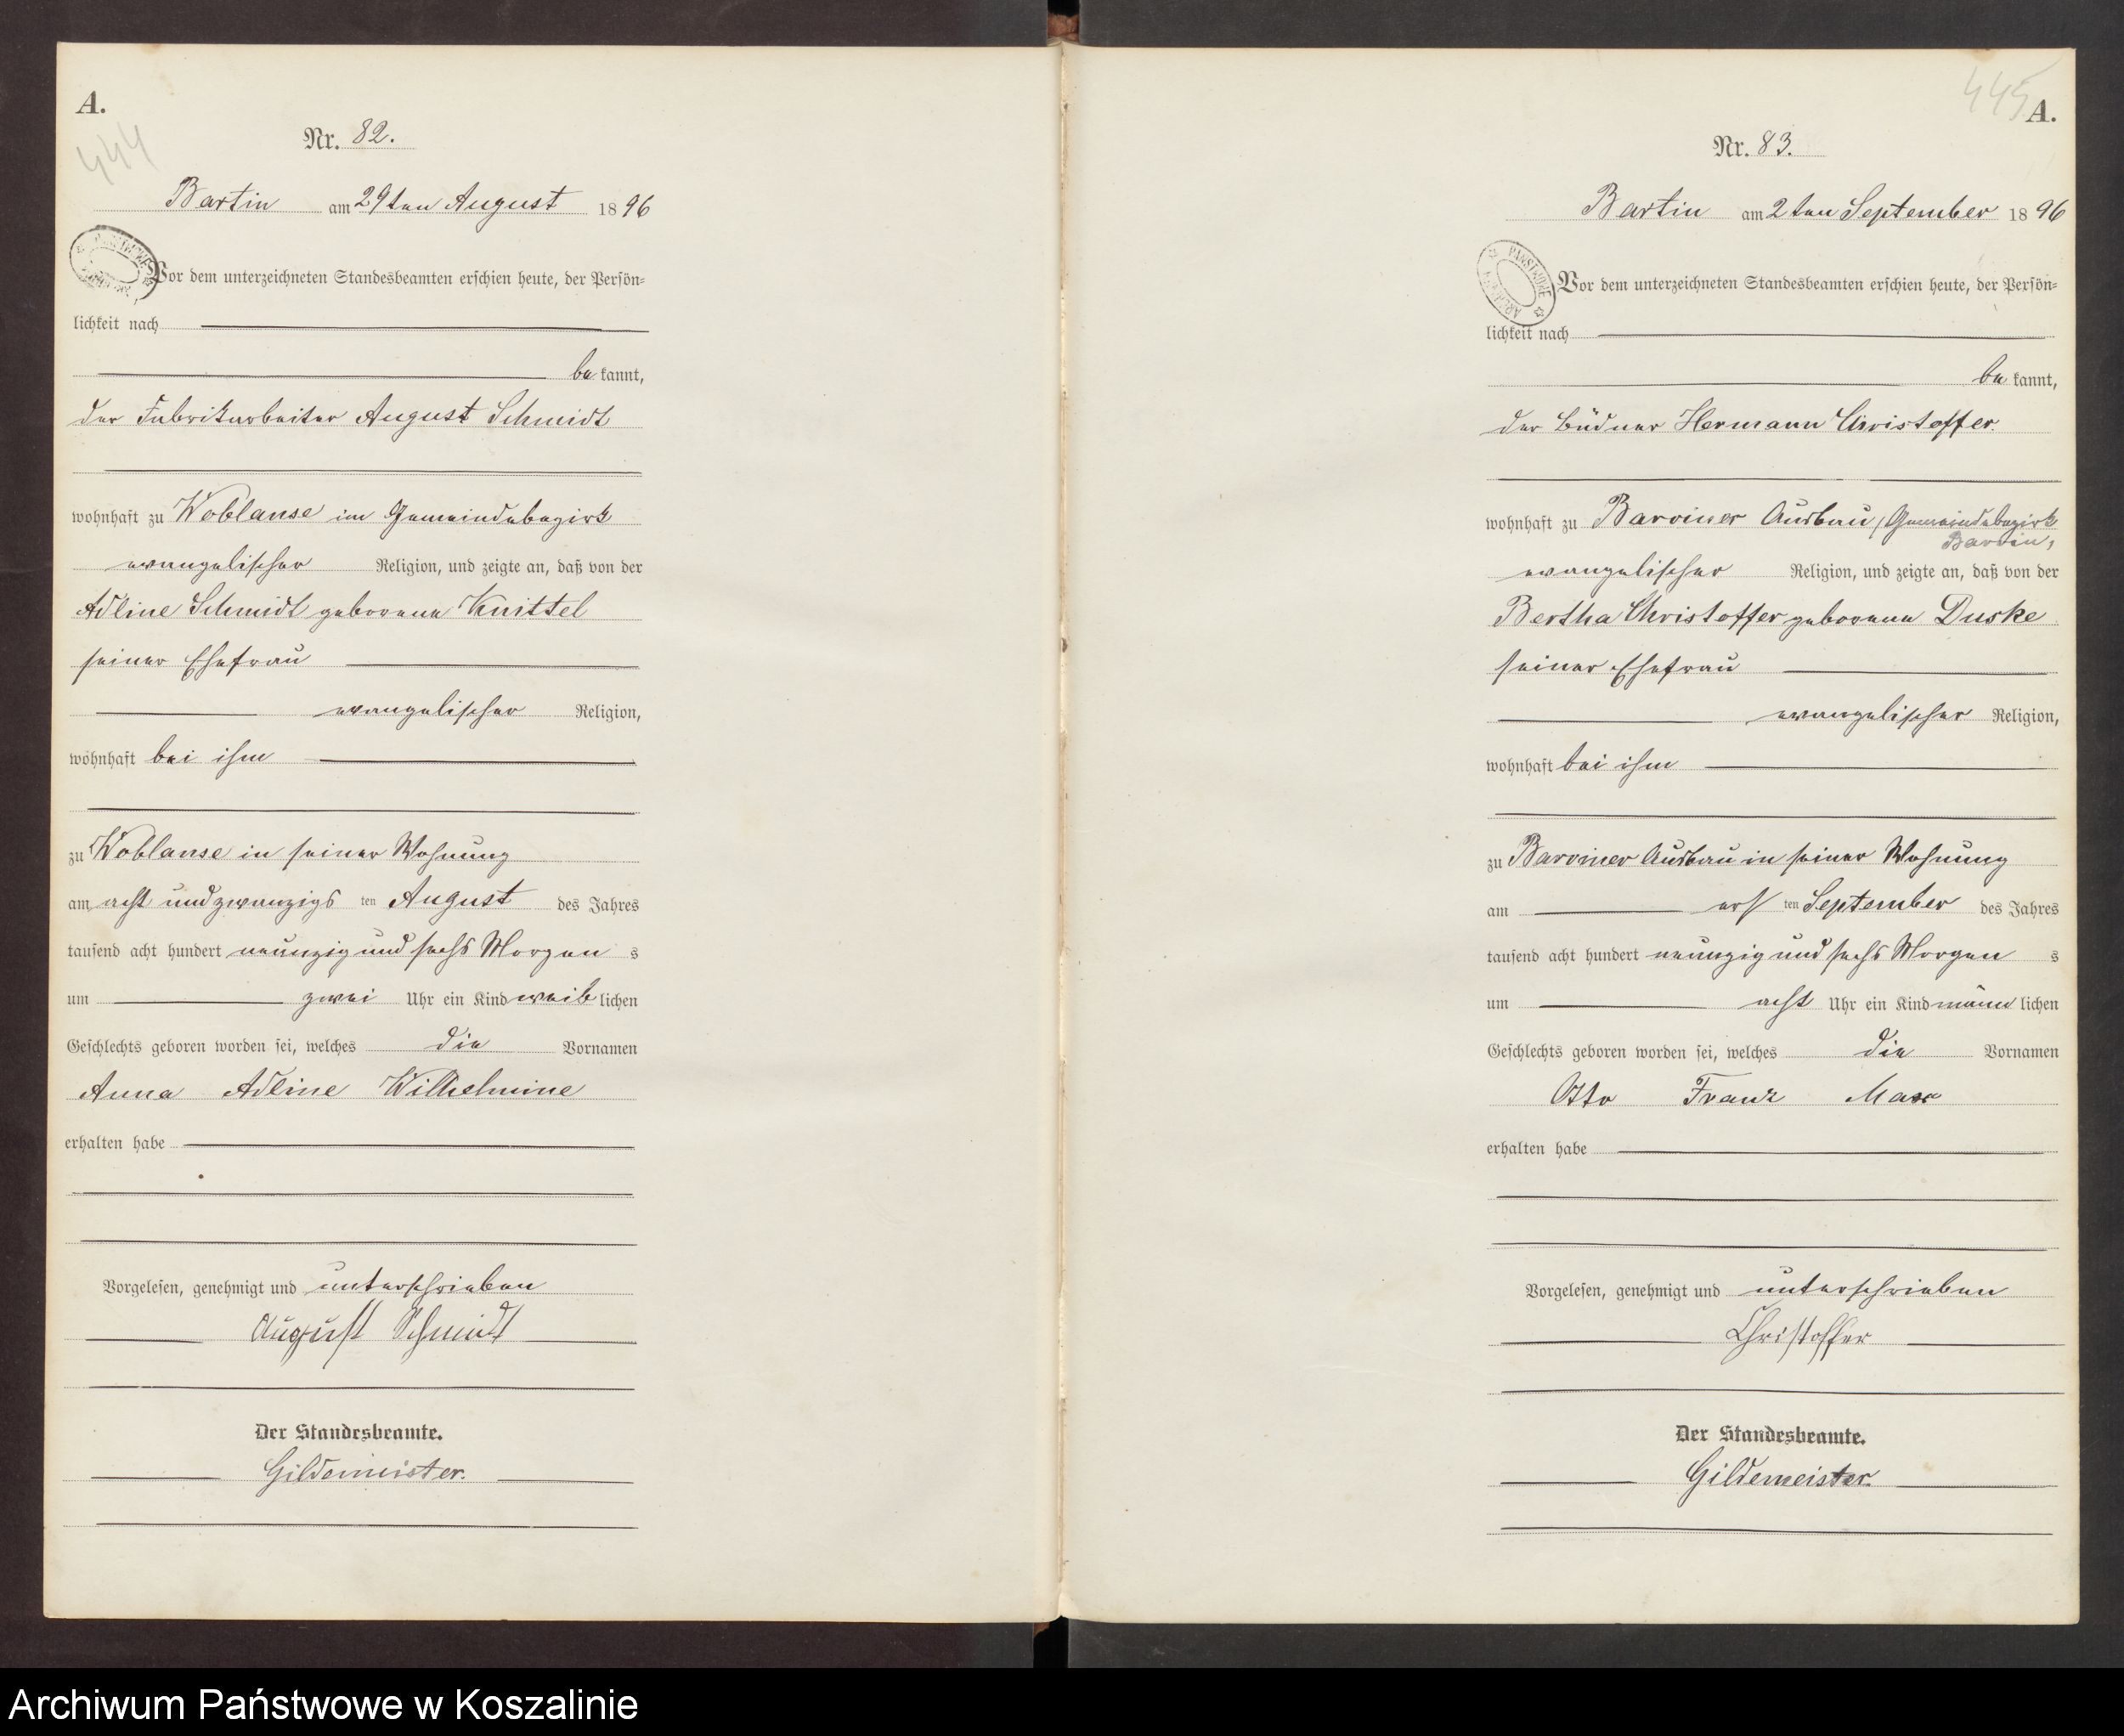 A.
444
Nr. 82.
Bartin am 29ten August 1896
Vor dem unterzeichneten Standesbeamten erschien heute, der Persön-
lichkeit nach
be kannt,
der Fabrikarbeiter August Schmidt
wohnhaft zu Woblanse im Gemeindebezirk
evangelischer Religion, und zeigte an, daß von der
Adline Schmidt geborene Knittel
seiner Ehefrau
evangelischer Religion,
wohnhaft bei ihm
zu Woblanse in seiner Wohnung
am acht und zwanzigs ten August des Jahres
tausend acht hundert neunzig und sechs Morgen s
um zwei Uhr ein Kind weib lichen
Geschlechts geboren worden sei, welches die Vornamen
Anna Adline Wilhelmine
erhalten habe
Vorgelesen, genehmigt und unterschrieben
August Schmidt
Der Standesbeamte.
Gildemeister.
445
A.
Nr. 83.
Bartin am 2ten September 1896
PAŃSTWOWE
Vor dem unterzeichneten Standesbeamten erschien heute, der Persön-
lichkeit nach
be kannt,
der Büdner Hermann Christoffer.
wohnhaft zu Barviner Ausbau, Gemeindebezirk
Barvin,
evangelischer Religion, und zeigte an, daß von der
Bertha Christoffer geborene Duske
seiner Ehefrau
evangelischer Religion,
wohnhaft bei ihm
zu Barviner Ausbau in seiner Wohnung
am ers ten September des Jahres
tausend acht hundert neunzig und sechs Morgen s
um acht Uhr ein Kind männ lichen
Geschlechts geboren worden sei, welches die Vornamen
Otto Franz Max
erhalten habe
Vorgelesen, genehmigt und unterschrieben
Christoffer
Der Standesbeamte.
Gildemeister.
Archiwum Państwowe w Koszalinie